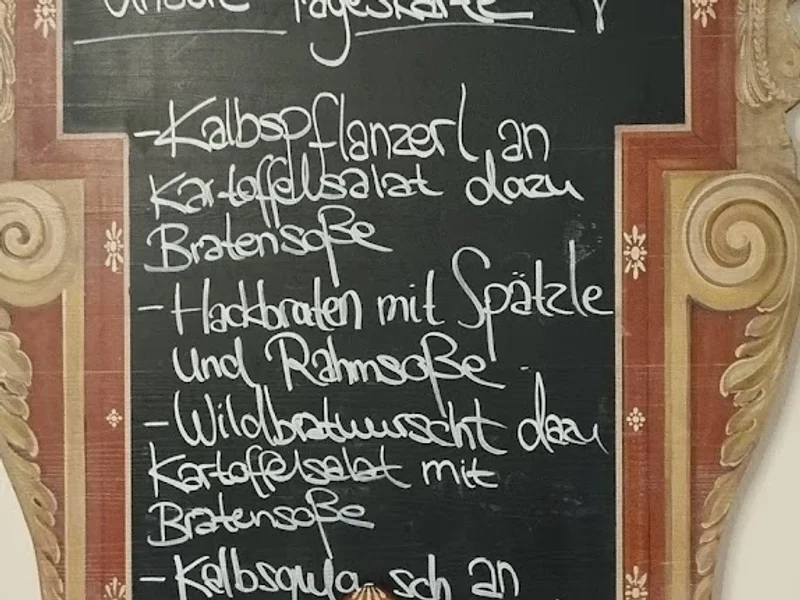 Unsere Tageskarte
- Kalbspflanzerl an
Kartoffelsalat dazu
Bratensoße
- Hackbraten mit Spätzle
und Rahmsoße
- Wildbratwurscht dazu
Kartoffelsalat mit
Bratensoße
- Kalbsgulasch an